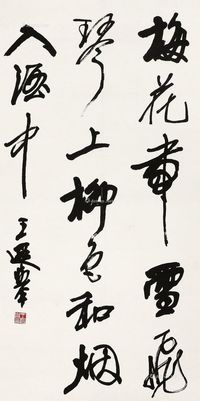 梅花带雪飞
琴上柳色和烟
入酒中
王遐举